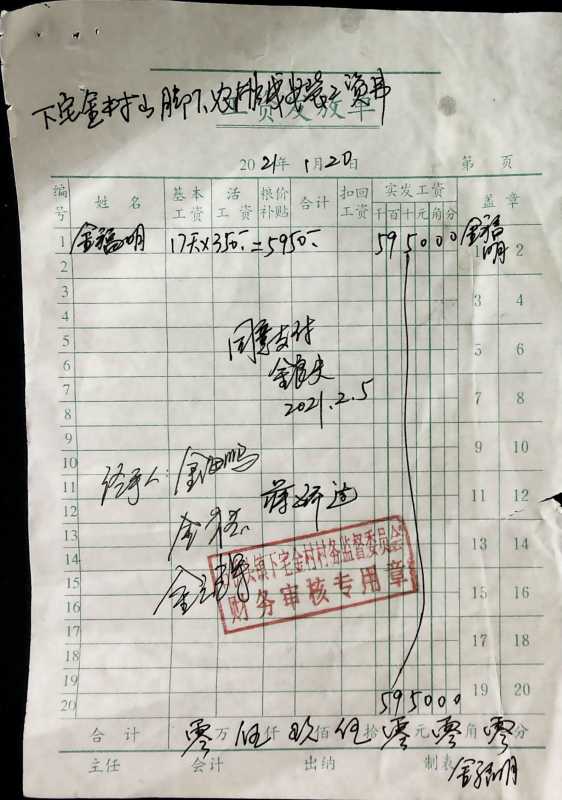 下宅金村山脚下农
工资发放单
2021年1月20日 第 页
编号 姓名 基本工资 活工资 粮价补贴 合计 扣回工资 实发工资 千百十元角分 盖章
1 金福明 17天×350.-=5950.- 595000 金福明 1 2
2
3 3 4
4
5 同意支付 5 6
6
7 7 8
8 2021.2.5
9 9 10
10
11 经手人: 11 12
12
13 13 14
14 镇下宅金村村务监督委员会
15 财务审核专用章 15 16
16
17 17 18
18
19 19 20
20 595000
合计 零万伍仟玖佰伍拾零元零角零分
主任 会计 出纳 制表
金福明